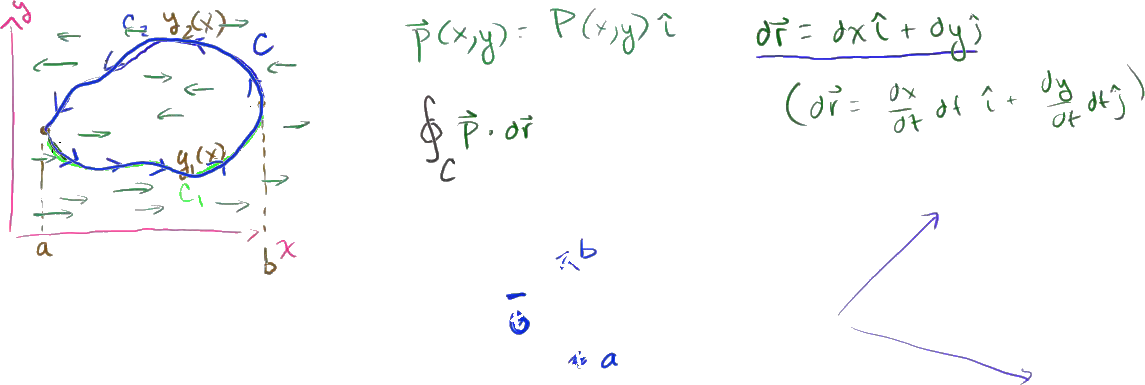 y
C₂ y₂(x) C
y₁(x)
C₁
a b x
P⃗(x,y) = P(x,y) î
∮_C P⃗ · dr⃗
dr⃗ = dx î + dy ĵ
(dr⃗ = dx/dt dt î + dy/dt dt ĵ)
b
a